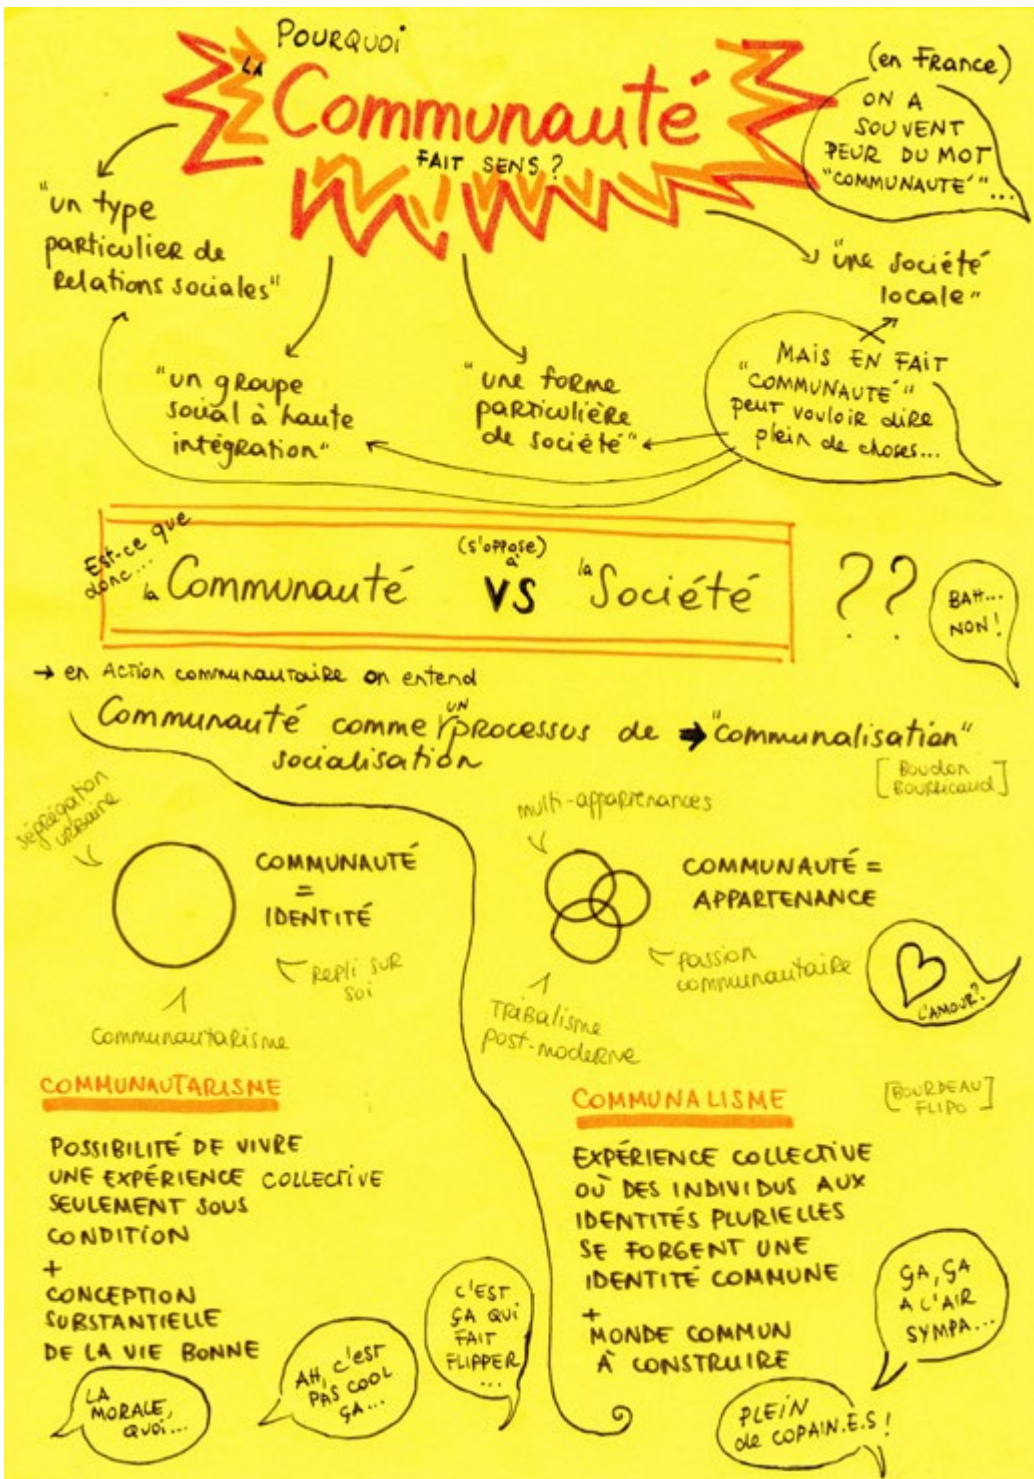 POURQUOI
LA
Communauté
FAIT SENS ?
(en France)
ON A
SOUVENT
PEUR DU MOT
"COMMUNAUTÉ"...
"un type
particulier de
relations sociales"
"une société
locale"
"un groupe
social à haute
intégration"
"une forme
particulière
de société"
MAIS EN FAIT
"COMMUNAUTÉ"
peut vouloir dire
plein de choses...
Est-ce que
donc...
la Communauté
(s'oppose)
à
VS
la Société
??
BAH...
NON !
→ en Action communautaire on entend
Communauté comme un processus de → "communalisation"
socialisation
[Boudon
Bourricaud]
ségrégation
urbaine
COMMUNAUTÉ
=
IDENTITÉ
repli sur
soi
Communautarisme
multi-appartenances
COMMUNAUTÉ =
APPARTENANCE
passion
communautaire
L'AMOUR?
Tribalisme
post-moderne
COMMUNAUTARISME
POSSIBILITÉ DE VIVRE
UNE EXPÉRIENCE COLLECTIVE
SEULEMENT SOUS
CONDITION
+
CONCEPTION
SUBSTANTIELLE
DE LA VIE BONNE
LA
MORALE,
QUOI...
AH, C'EST
PAS COOL
ÇA...
C'EST
ÇA QUI
FAIT
FLIPPER
...
COMMUNALISME
[BOURDEAU
FLIPO]
EXPÉRIENCE COLLECTIVE
OÙ DES INDIVIDUS AUX
IDENTITÉS PLURIELLES
SE FORGENT UNE
IDENTITÉ COMMUNE
+
MONDE COMMUN
À CONSTRUIRE
ÇA, ÇA
A L'AIR
SYMPA...
PLEIN
de COPAIN.E.S !